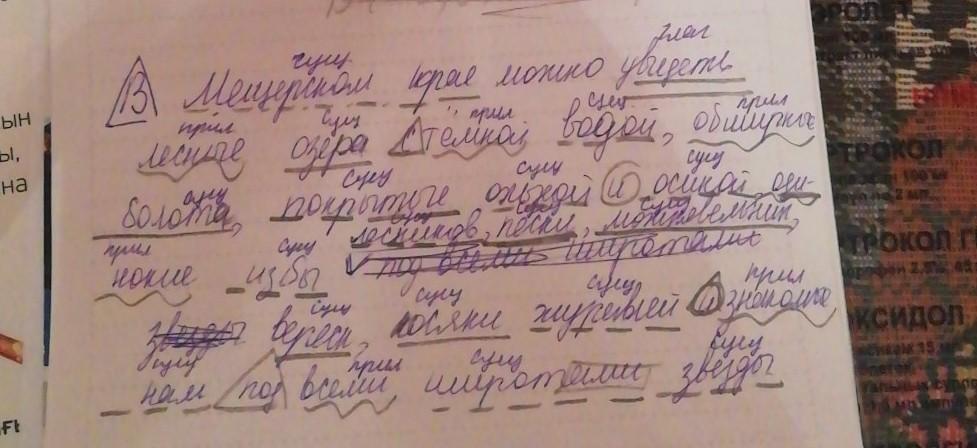 сущ глаг
В Мещерском крае можно увидеть
прил сущ прил сущ прил
лесные озёра с тёмной водой, обширные
сущ сущ сущ
болота, покрытые ольхой и осикой, оди-
лесников, пески, можжевельник,
прил сущ
нокие избы под всеми широтами
сущ сущ сущ прил
звезды вереск, косяки журавлей и знакомые
сущ прил сущ сущ
нам под всеми широтами звезды
ЫН
Ы,
на
ТРОКОЛ
ТРОКОЛ П
ОКСИДОЛ